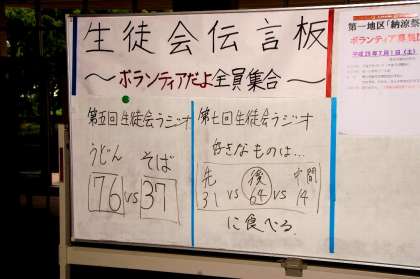 生徒会伝言板
〜ボランティアだよ全員集合〜
第五回生徒会ラジオ
うどん そば
76 vs 37
第七回生徒会ラジオ
好きなものは…
先 後 中間
31 vs 64 vs 14
に食べる。
第一地区「納涼祭
ボランティア募集
平成25年7月1日(土)